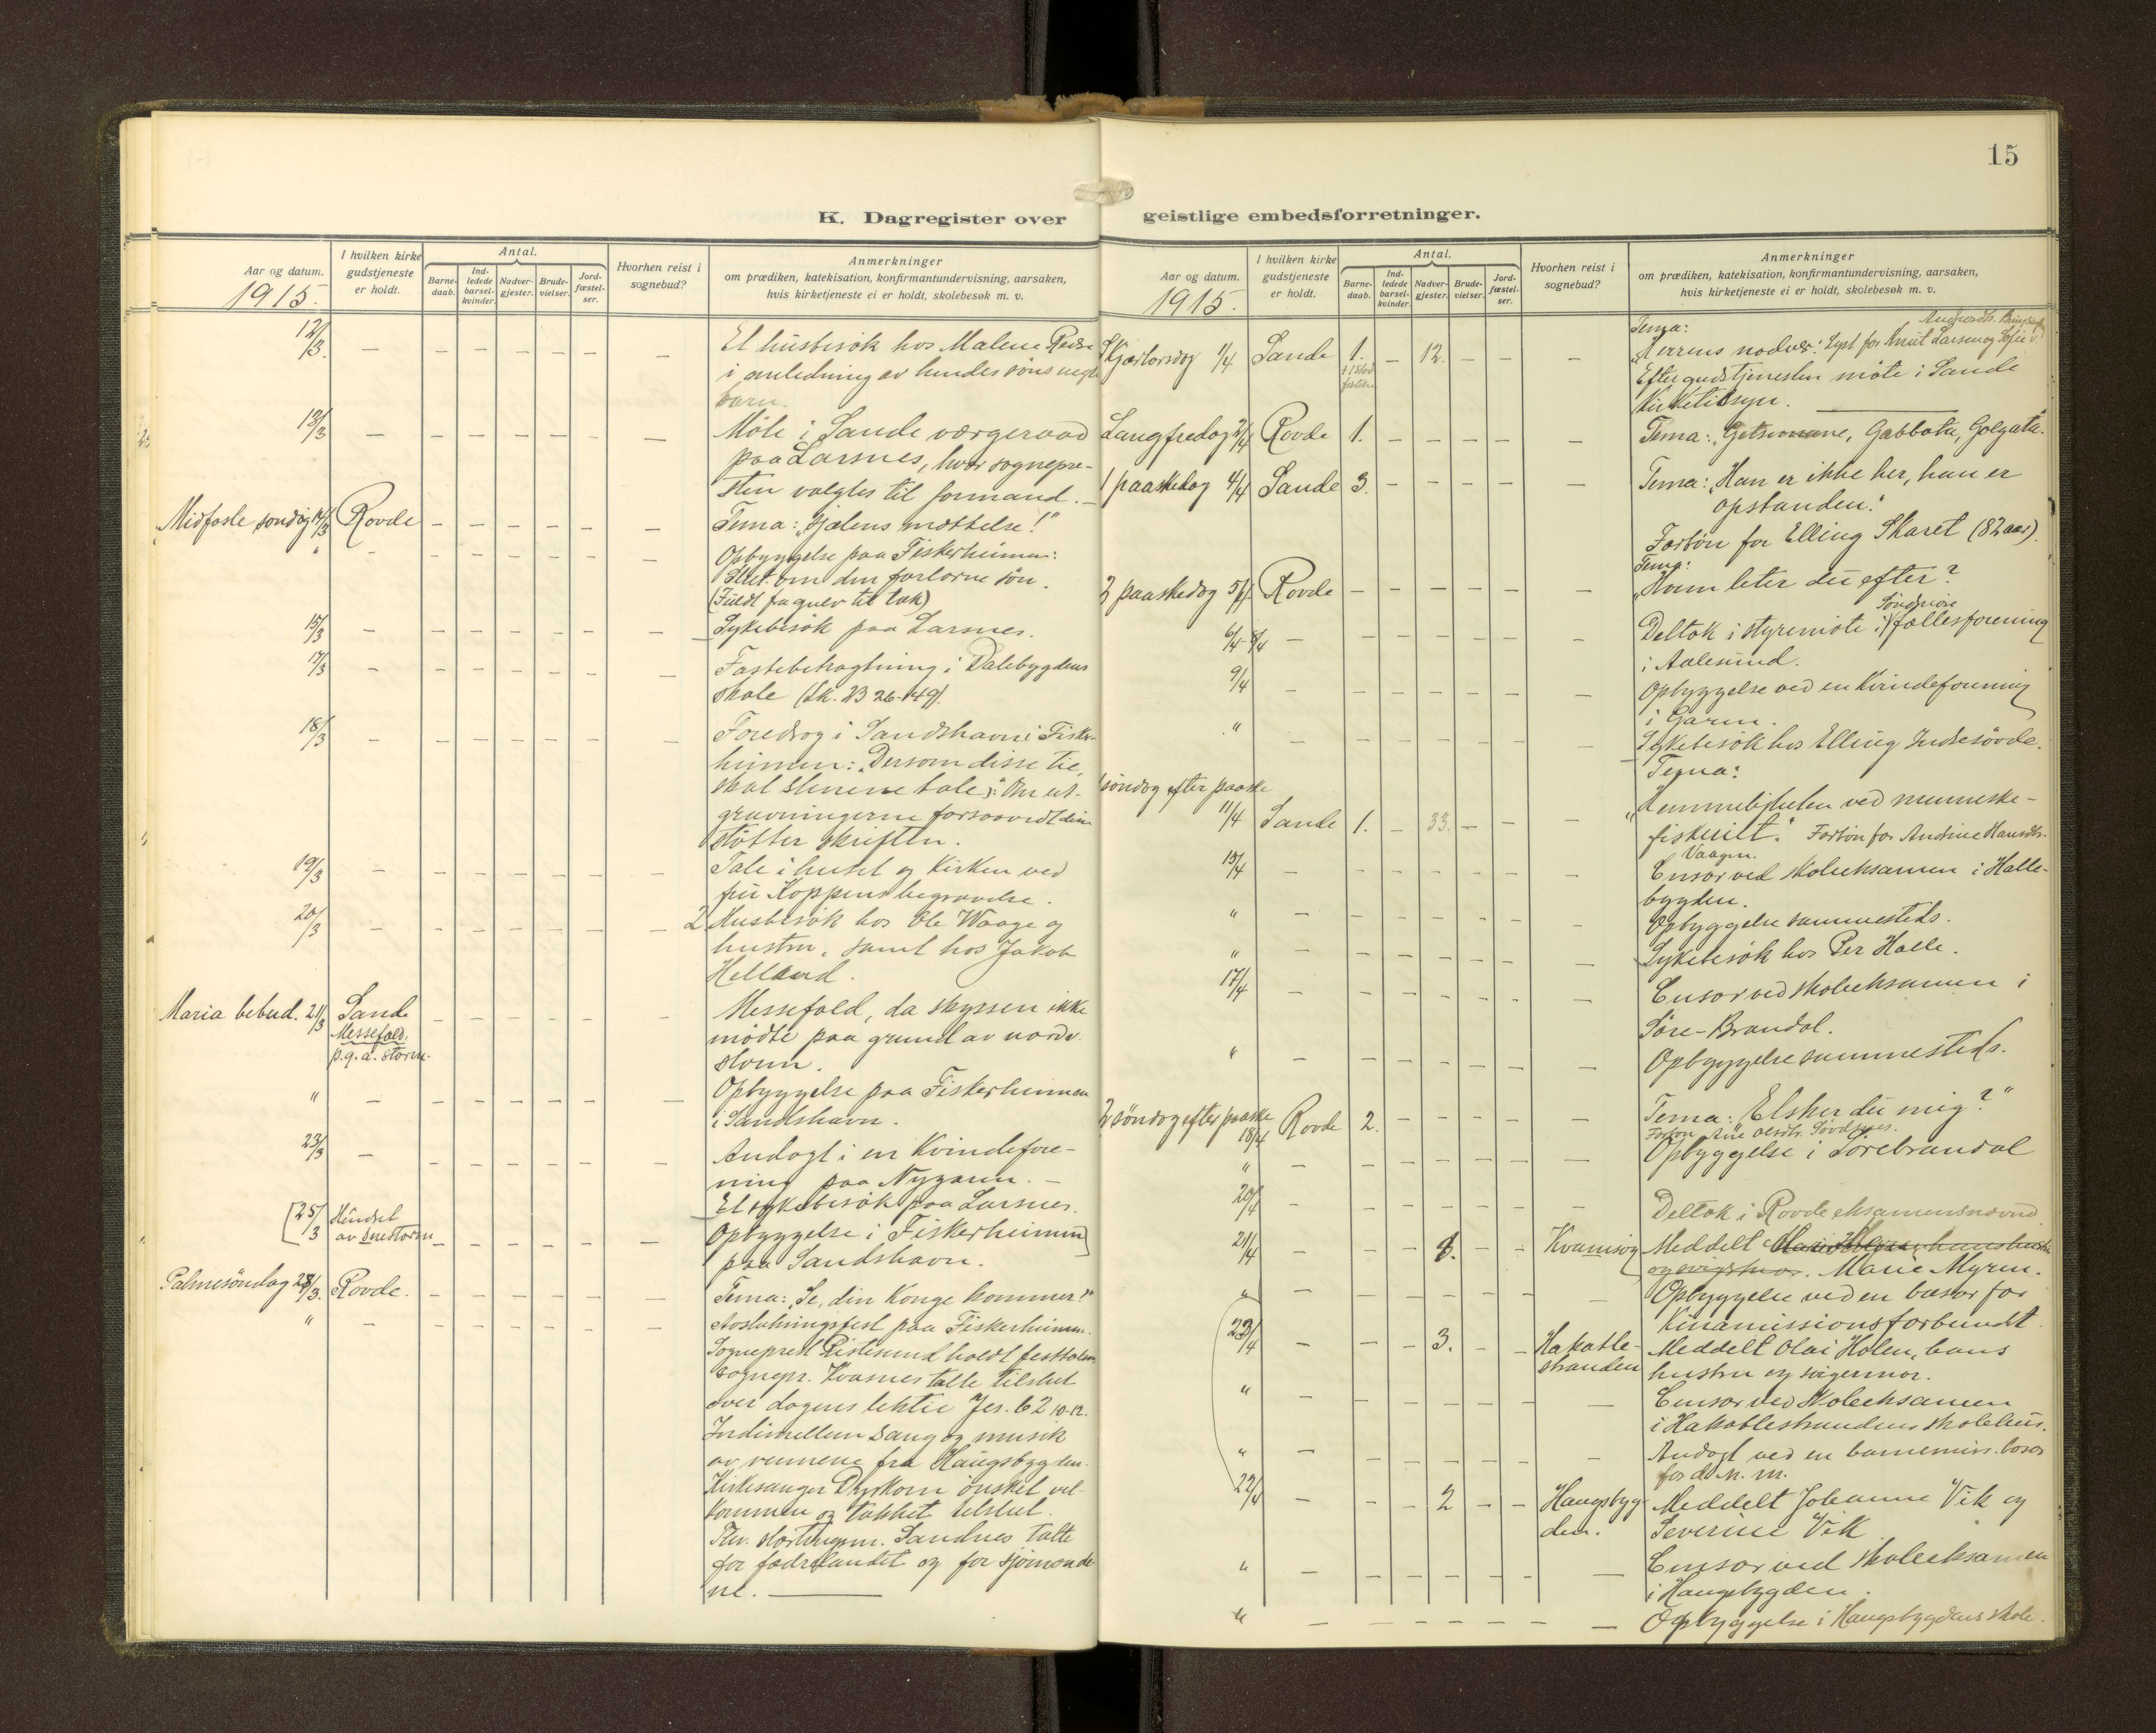 15
K. Dagregister over
geistlige embedsforretninger.
Aar og datum.
1915.
I hvilken kirke
gudstjeneste
er holdt.
Antal.
Barne-
daab.
Ind-
ledede
barsel-
kvinder.
Nadver-
gjester.
Brude-
vielser.
Jord-
fæstel-
ser.
Hvorhen reist i
sognebud?
Anmerkninger
om prædiken, katekisation, konfirmantundervisning, aarsaken,
hvis kirketjeneste ei er holdt, skolebesøk m. v.
12/3. — — — — — — — Et husbesøk hos Malene
i anledning av hendes søns
barn.
13/3 — — — — — — — Møte i Sande værgeraad
paa Larsnes, hvor sognepre-
sten valgtes til formand. —
Midfaste søndag 14/3 Rovde — — — — — — Tema: „Sjælens mættelse!"
" - — — — — — — Opbyggelse paa Fiskerheimen:
Slut. om den forlorne søn.
(Fuldt fra gulv til tak)
15/3 — — — — — — — Sykebesøk paa Larsnes.
17/3 - — — — — — — Fastebetragtning i Dalebygdens
skole (Lk. 23 26-49).
18/3 — — — — — — — Foredrag i Sandshavn i Fisker-
heimen: „Dersom disse tie,
skal stenene tale": Om ut-
gravningerne forsaavidt de
støtter skriften.
19/3 — — — — — — — Tale i huset og kirken ved
fru Koppens begravelse.
20/3 — — — — — — — 2 Husbesøk hos Ole Waage og
hustru, samt hos Jakob
Helland.
Maria bebud. 21/3 Sande — — — — — — Messefald, da skyssen ikke
Messefald,
p.g.a. storm.
mødte paa grund av nordv.
storm.
" — — — — — — — Opbyggelse paa Fiskerheimen
i Sandshavn.
23/3 — — — — — — — Andagt i en Kvindefore-
ning paa Nygaren. —
Et sykebesøk paa Larsnes.
[25/3 Hindret
av snestorm — — — — — — Opbyggelse i Fiskerheimen]
paa Sandshavn.
Palmesöndag 28/3. Rovde. - — — — — — Tema: „Se, din Konge kommer!"
" — — — — — — — Avslutningsfest paa Fiskerheimen.
Sogneprest Ristesund holdt festtalen,
sognepr. Kvasnes talte tilslut
over dagens lektie Jes. 62 10-12.
Indimellem sang og musik
av vennene fra Haugsbygden.
Kirkesanger Dyrkorn ønsket vel-
kommen og takket tilslut.
Fhv. stortingsm. Sandnes talte
for fædrelandet og for sjømænde-
ne. —
Aar og datum.
1915.
I hvilken kirke
gudstjeneste
er holdt.
Antal.
Barne-
daab.
Ind-
ledede
barsel-
kvinder.
Nadver-
gjester.
Brude-
vielser.
Jord-
fæstel-
ser.
Hvorhen reist i
sognebud?
Anmerkninger
om prædiken, katekisation, konfirmantundervisning, aarsaken,
hvis kirketjeneste ei er holdt, skolebesøk m. v.
Skjærtorsdag 1/4 Sande 1. — 12. — — — Tema:
„Herrens nadver". Lyst for Knut Larsen og Sofie
Efter gudstjenesten møte i Sande
kirketilsyn. —
Langfredag 2/4 Rovde 1. — — — — — Tema: „Getsemane, Gabbata, Golgata."
1 paaskedag 4/4 Sande 3. — — — — — Tema: „Han er ikke her, han er
opstanden."
Forbøn for Elling Skaret (82 aar).
2 paaskedag 5/4 Rovde — — — — — — Tema:
„Hvem leter du efter?
6/4-8/4 — — — — — — - Deltok i styremöte i Søndmöre fællesforening
i Aalesund.
9/4 — — — — — — — Opbyggelse ved en Kvindeforening
i Garen.
" — — — — — — — Sykebesøk hos Elling Indresøvde.
1 søndag efter paaske
11/4 Sande 1. — 33. — — — Tema:
„Hemmeligheten ved menneske-
fiskeriet." Forbön for Andrine Hansdtr.
Vaagen.
15/4 — — — — — — — Censor ved skoleeksamen i Halle-
bygden.
" — — — — — — - Opbyggelse sammesteds.
" — — — — — — — Sykebesøk hos Per Halle.
17/4 — — — — — — — Censor ved skoleeksamen i
Søre-Brandal.
" — — — — — — — Opbyggelse sammesteds.
2 søndag efter paaske
18/4 Rovde 2. — — — — — Tema: „Elsker du mig?"
" — — — — — — — Opbyggelse i Sørebrandal
20/4 - — — — — — — Deltok i Rovde eksamensnævnd
21/4 — — — 8. — — Kvamsög Meddelt Marie Myren.
" — — — — — — — Opbyggelse ved en basar for
Kinamissionsforbundet.
23/4 — — — 3. — — Hakalle-
stranden Meddelt Olai Holen, hans
hustru og svigermor.
" — — — — — — — Censor ved skoleeksamen
i Hakallestrandens skolehus.
" — — — — — — — Andagt ved en barnemiss. basar
for d. n. m.
22/4 — — — 2 — — Haugsbyg-
den. Meddelt Johanne Vik og
Severine Vik.
" — — — — — — — Censor ved skoleeksamen
i Haugsbygden.
" — — — — — — — Opbyggelse i Haugsbygdens skole.